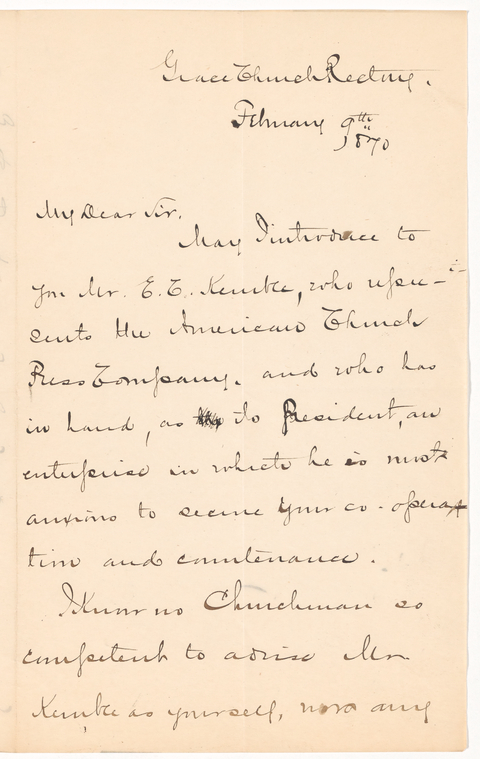 Grace Church Rectory.
February 9th
1870
My Dear Sir.
May I introduce to
you Mr. E. C. Kemble, who repre-
sents the American Church
Press Company. and who has
in hand, as its President, an
enterprise in which he is most
anxious to secure your co-opera-
tion and countenance.
I Know no Churchman so
competent to advise Mr
Kemble as yourself, nor any